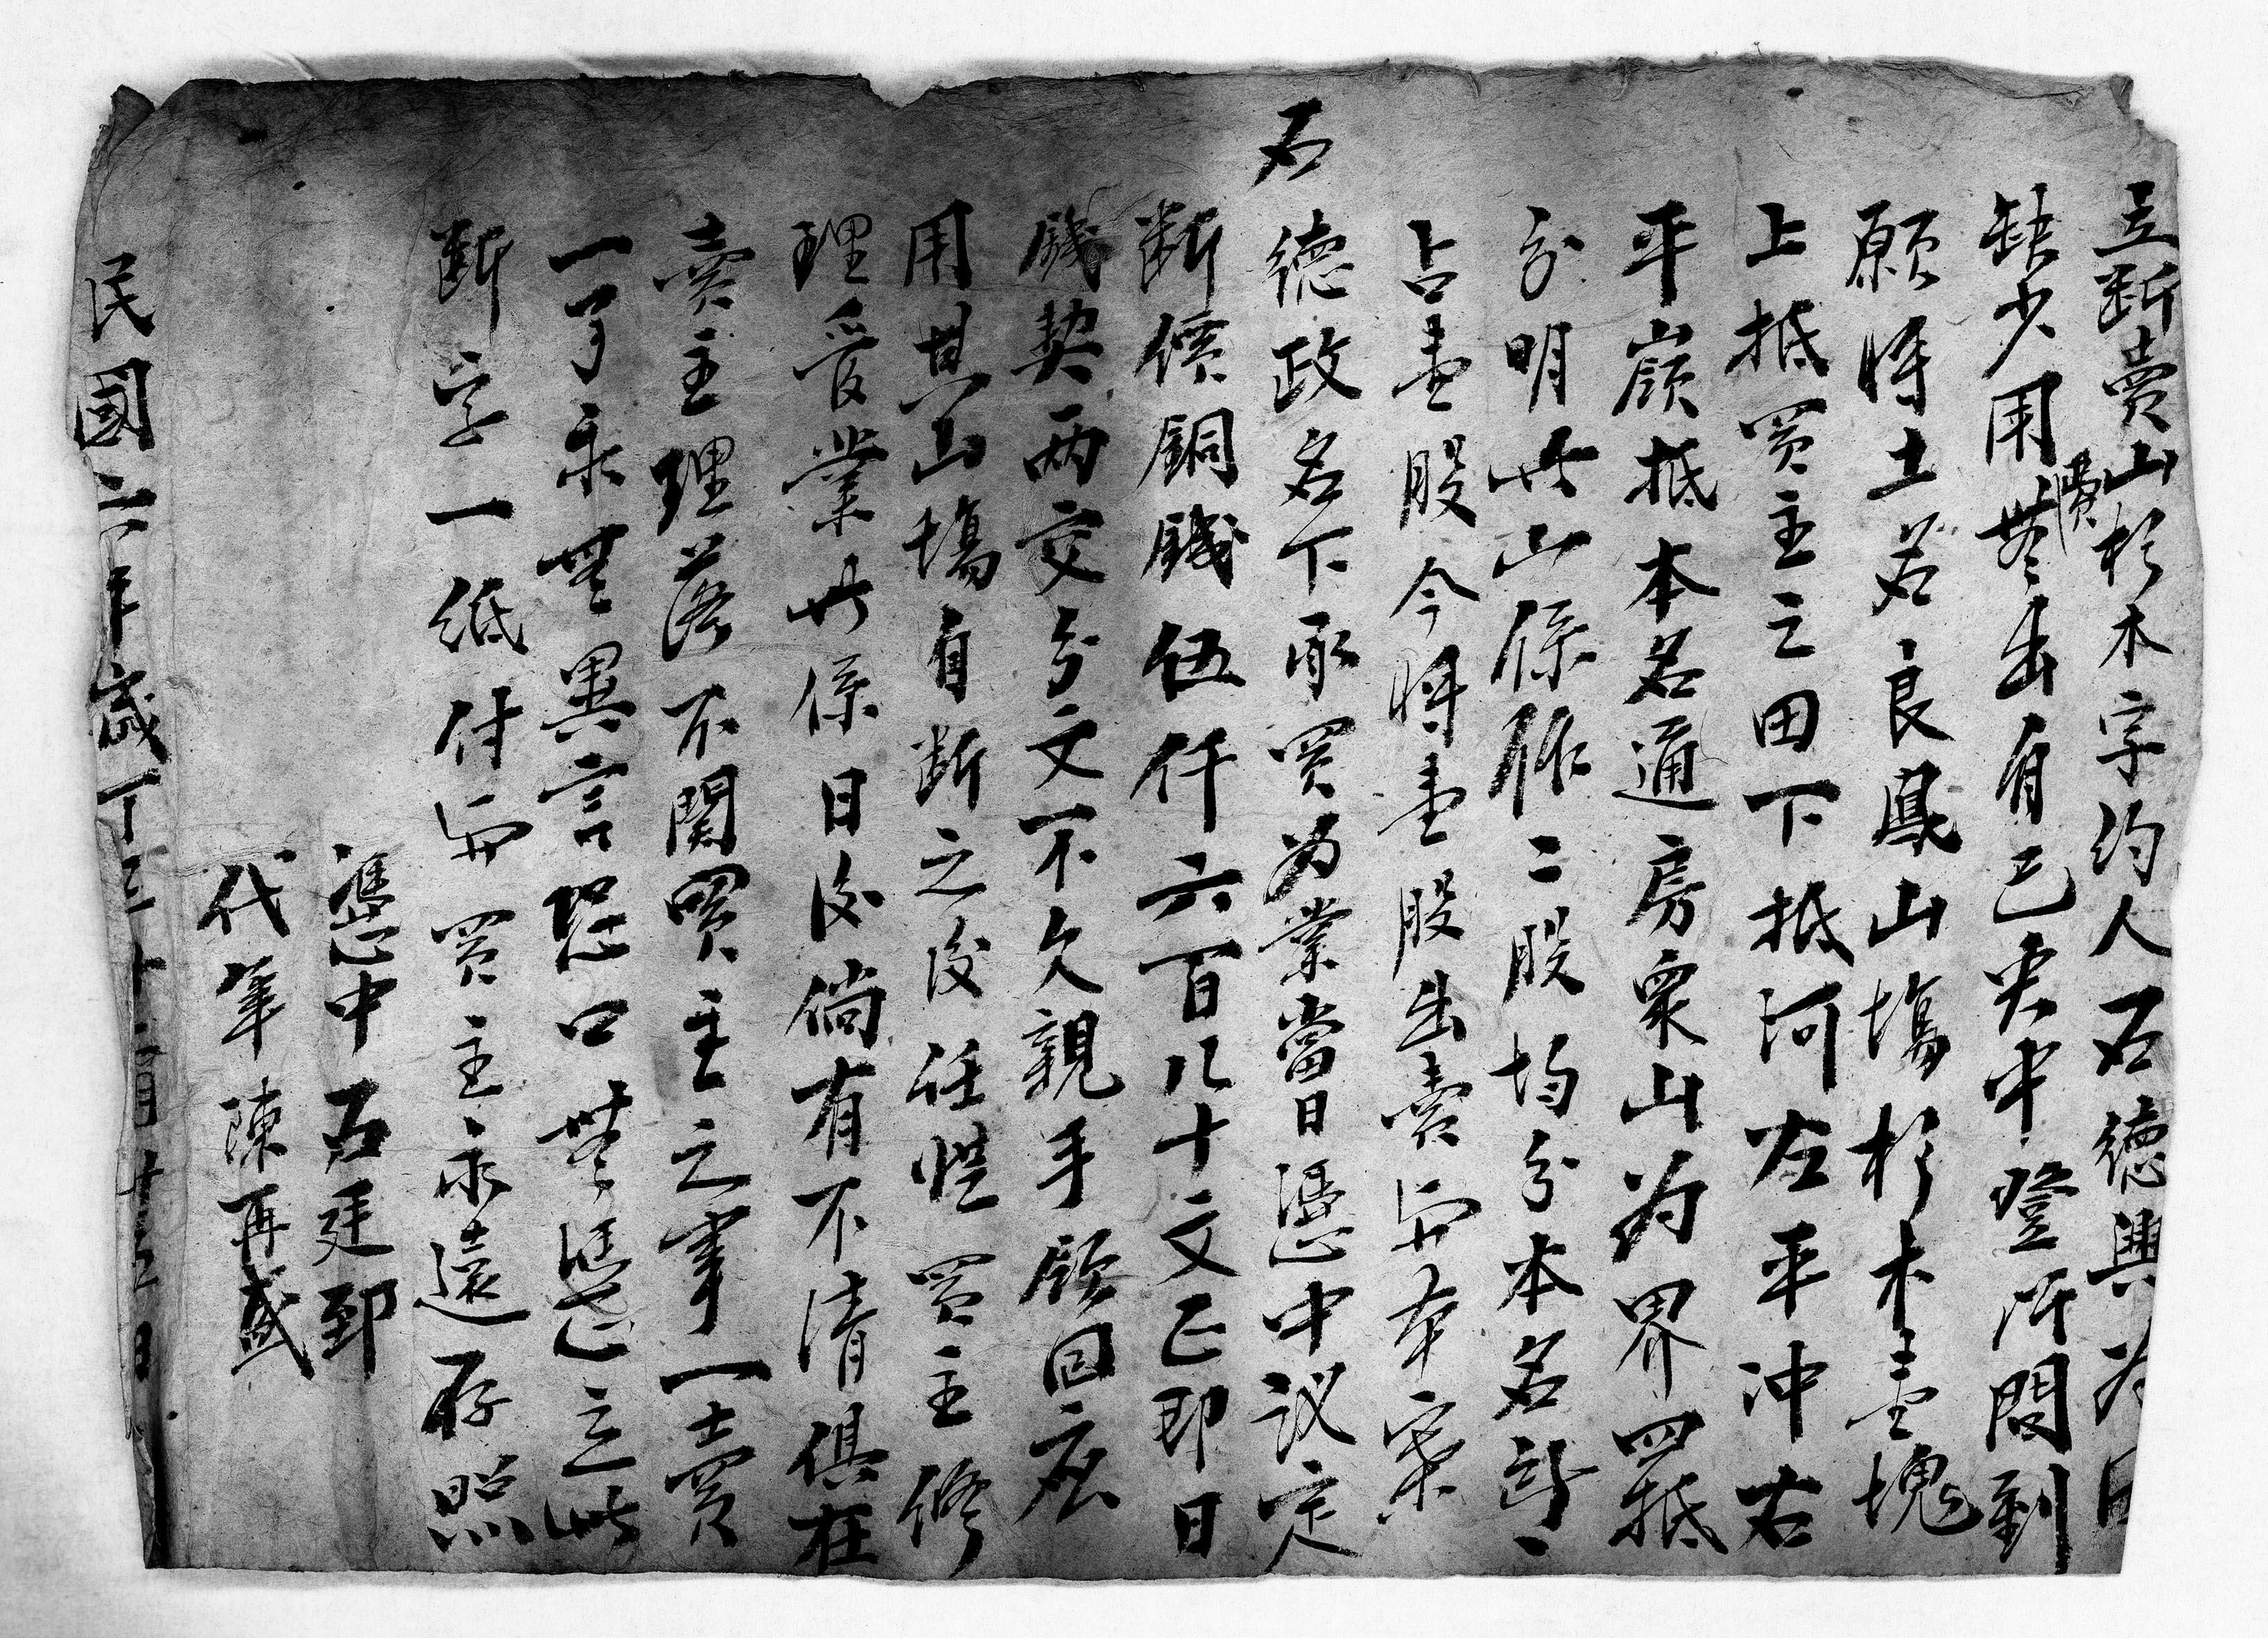 立断賣山杉木字約人石德興為因
缺少用費無出自己央中登所問到
願將土名良鳳山塲杉木壹塊
上抵買主之田下抵河左平冲右
平嶺抵本名通房衆山為界四抵
分明此山係作二股均分本名
占壹股今將壹股出賣与本寨
石德政名下承買为業當日憑中议定
断價銅錢伍仟六百八十文正即日
錢契兩交分文不欠親手領回應
用其山塲自断之後任凴買主修
理管業此係日後倘有不清俱在
賣主理落不関買主之事一賣
一了永無異言恐口無憑立此
断字一紙付与買主永遠存照
憑中 石廷郅
代筆 陳再盛
民國六年歲丁巳十二月十五日